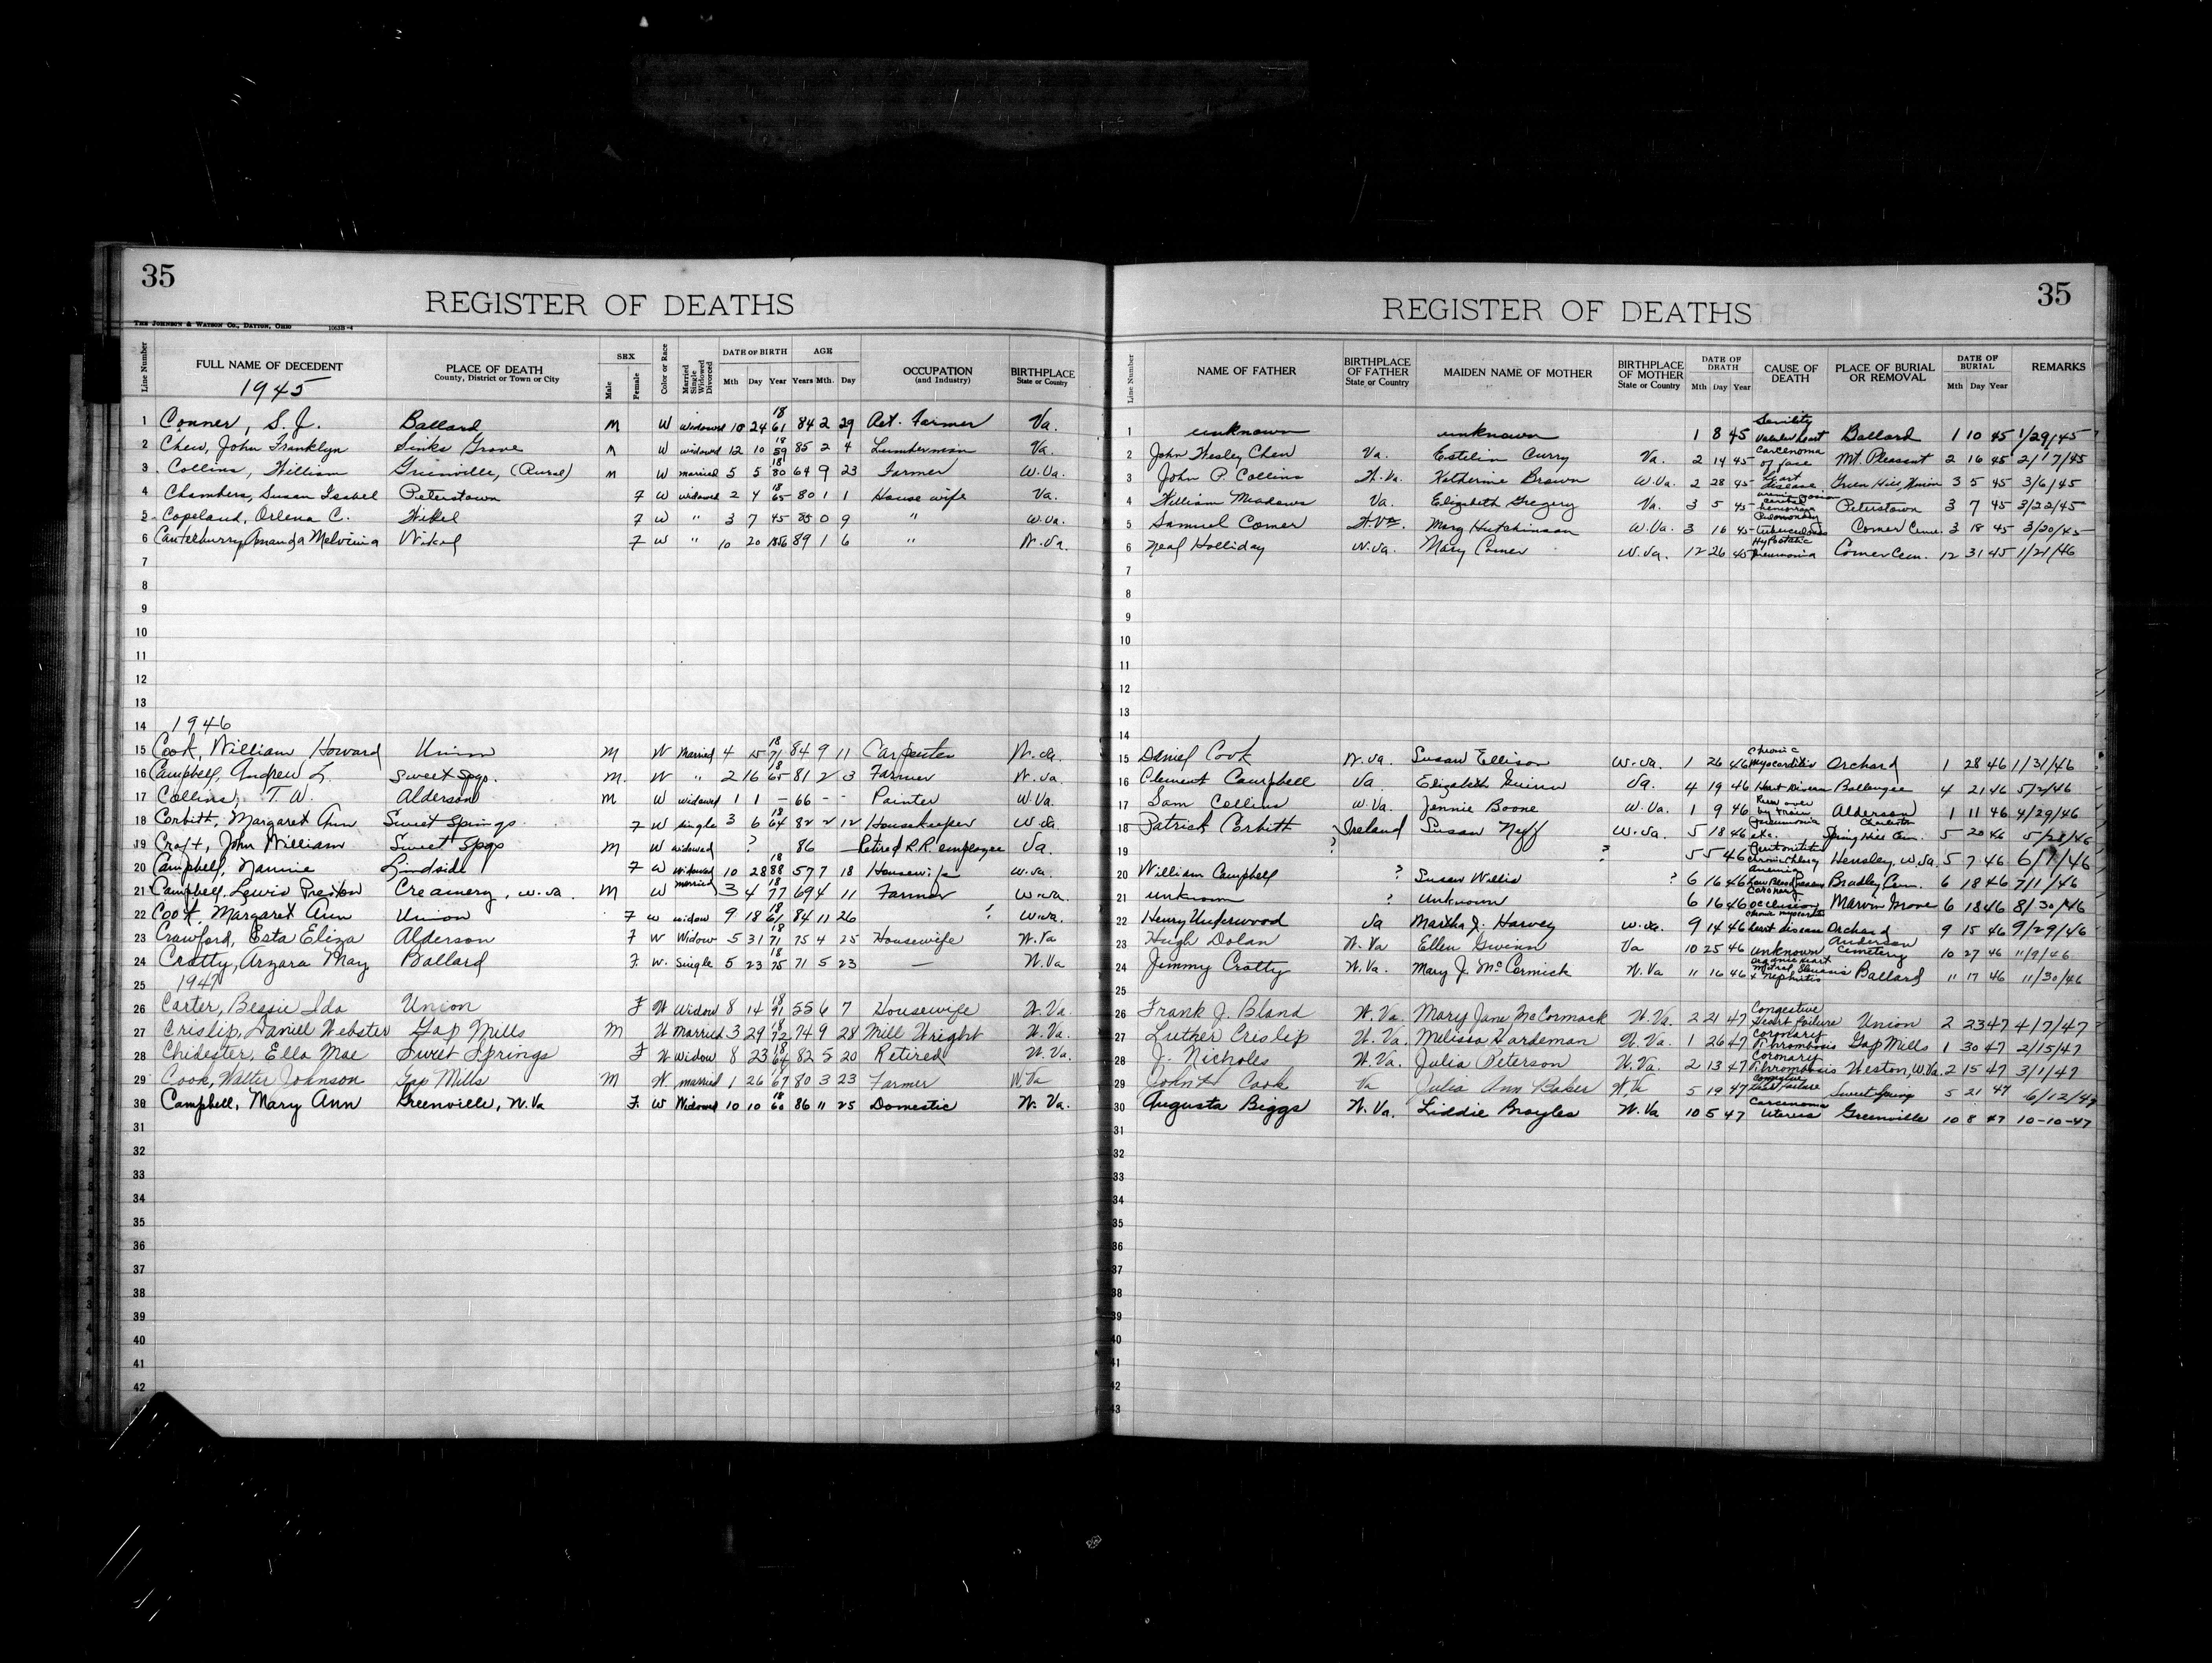 35
REGISTER OF DEATHS
THE JOHNSON & WATSON CO., DAYTON, OHIO 1053B-4
Line Number FULL NAME OF DECEDENT PLACE OF DEATH County, District or Town or City SEX Male Female Color or Race Married Single Widowed Divorced DATE OF BIRTH Mth Day Year AGE Years Mth. Day OCCUPATION (and Industry) BIRTHPLACE State or County
1945
1 Conner, S. J. Ballard M W widowed 10 24 1861 84 2 29 Ret. Farmer Va.
2 Chew, John Franklyn Sinks Grove M W widowed 12 10 1859 85 2 4 Lumberman Va.
3 Collins, William Greenville, (Rural) M W married 5 5 1880 64 9 23 Farmer W.Va.
4 Chambers, Susan Isabel Peterstown F W widowed 2 4 1865 80 1 1 House wife Va.
5 Copeland, Orlena C. Wikel F W " 3 7 45 85 0 9 " W.Va.
6 Canterburry, Amanda Melvinia Wikel F W " 10 20 1856 89 1 6 " W.Va.
7
8
9
10
11
12
13
14 1946
15 Cook, William Howard Union M W Married 4 15 1871 84 9 11 Carpenter W.Va.
16 Campbell, Andrew L. Sweet Spgs. M. W " 2 16 1865 81 2 3 Farmer W.Va.
17 Collins, T. W. Alderson M W widowed 1 1 - 66 - - Painter W.Va.
18 Corbitt, Margaret Ann Sweet Springs F W single 3 6 1864 82 2 12 Housekeeper W.Va
19 Craft, John William Sweet Spgs M W widowed ? 86 — Retired R.R. employee Va.
20 Campbell, Nannie Lindside F W widowed 10 28 1888 57 7 18 Housewife W.Va.
21 Campbell, Lewis Preston Creamery, W.Va. M W married 3 4 1877 69 4 11 Farmer W.Va.
22 Cook, Margaret Ann Union F W widow 9 18 1861 84 11 26 ? W.Va.
23 Crawford, Esta Eliza Alderson F W Widow 5 31 1871 75 4 25 Housewife W.Va
24 Crotty, Arzara May Ballard F. W. Single 5 23 1875 71 5 23 — W.Va
25 1947
26 Carter, Bessie Ida Union F W Widow 8 14 1891 55 6 7 Housewife W.Va.
27 Crislip, Daniel Webster Gap Mills M W Married 3 29 1872 74 9 28 Mill Wright W.Va.
28 Chidester, Ella Mae Sweet Springs F W Widow 8 23 1864 82 5 20 Retired W.Va.
29 Cook, Walter Johnson Gap Mills M W married 1 26 1867 80 3 23 Farmer W Va
30 Campbell, Mary Ann Greenville, W.Va F. W Widowed 10 10 1860 86 11 25 Domestic W. Va.
31
32
33
34
35
36
37
38
39
40
41
42
35
REGISTER OF DEATHS
Line Number NAME OF FATHER BIRTHPLACE OF FATHER State or Country MAIDEN NAME OF MOTHER BIRTHPLACE OF MOTHER State or Country DATE OF DEATH Mth Day Year CAUSE OF DEATH PLACE OF BURIAL OR REMOVAL DATE OF BURIAL Mth Day Year REMARKS
1 unknown unknown 1 8 45 Senility Valvular heart Ballard 1 10 45 1/29/45
2 John Wesley Chew Va. Estilin Curry Va. 2 14 45 Carcenoma of face Mt. Pleasant 2 16 45 2/17/45
3 John P. Collins W.Va. Katherine Brown W.Va. 2 28 45 Heart disease Green Hill, Union 3 5 45 3/6/45
4 William Meadows Va. Elizabeth Gregory Va. 3 5 45 Peterstown 3 7 45 3/22/45
5 Samuel Comer W.Va. Mary Hutchinson W.Va. 3 16 45 Pulmonary tuberculosis Comer Cem. 3 18 45 3/20/45
6 Neal Holliday W.Va. Mary Comer W.Va. 12 26 45 Hypostatic pneumonia Comer Cem. 12 31 45 1/21/46
7
8
9
10
11
12
13
14
15 Daniel Cook W.Va. Susan Ellison W.Va. 1 26 46 Chronic myocarditis Orchard 1 28 46 1/31/46
16 Clement Campbell Va Elizabeth Guinn Va. 4 19 46 Heart Disease Ballengee 4 21 46 5/2/46
17 Sam Collins W.Va. Jennie Boone W.Va. 1 9 46 Run over by train Alderson 1 11 46 4/29/46
18 Patrick Corbitt Ireland Susan Neff W.Va. 5 18 46 Pneumonia etc. Charleston Spring Hill Cem. 5 20 46 5/28/46
19 ? ? 5 5 46 Hensley, W.Va. 5 7 46 6/1/46
20 William Campbell ? Susan Willis ? 6 16 46 Anemia Low Blood Pressure Bradley Cem. 6 18 46 7/1/46
21 unknown ? Unknown 6 16 46 Coronary occlusion Marvin Grove 6 18 46 8/30/46
22 Henry Underwood Va Martha J. Harvey W.Va. 9 14 46 Chronic myocarditis heart disease Orchard 9 15 46 9/29/46
23 Hugh Dolan W.Va Ellen Gwinn Va 10 25 46 unknown Anderson Cemetery 10 27 46 11/9/46
24 Jimmy Crotty W.Va. Mary J. McCormick W.Va 11 16 46 Organic heart Mitral Stenosis + Nephritis Ballard 11 17 46 11/30/46
25
26 Frank J. Bland W.Va. Mary Jane McCormack W.Va. 2 21 47 Congestive Heart failure Union 2 23 47 4/7/47
27 Luther Crislip W.Va. Melissa Hardeman W.Va. 1 26 47 Coronary Thrombosis Gap Mills 1 30 47 2/15/47
28 J. Nicholes W.Va. Julia Peterson W.Va. 2 13 47 Coronary Thrombosis Weston, W.Va. 2 15 47 3/1/47
29 John H Cook Va Julia Ann Baker W.Va 5 19 47 Congestive heart failure Sweet Springs 5 21 47 6/12/47
30 Augusta Biggs W.Va. Liddie Broyles W.Va 10 5 47 Carcenoma Uterus Greenville 10 8 47 10-10-47
31
32
33
34
35
36
37
38
39
40
41
42
43